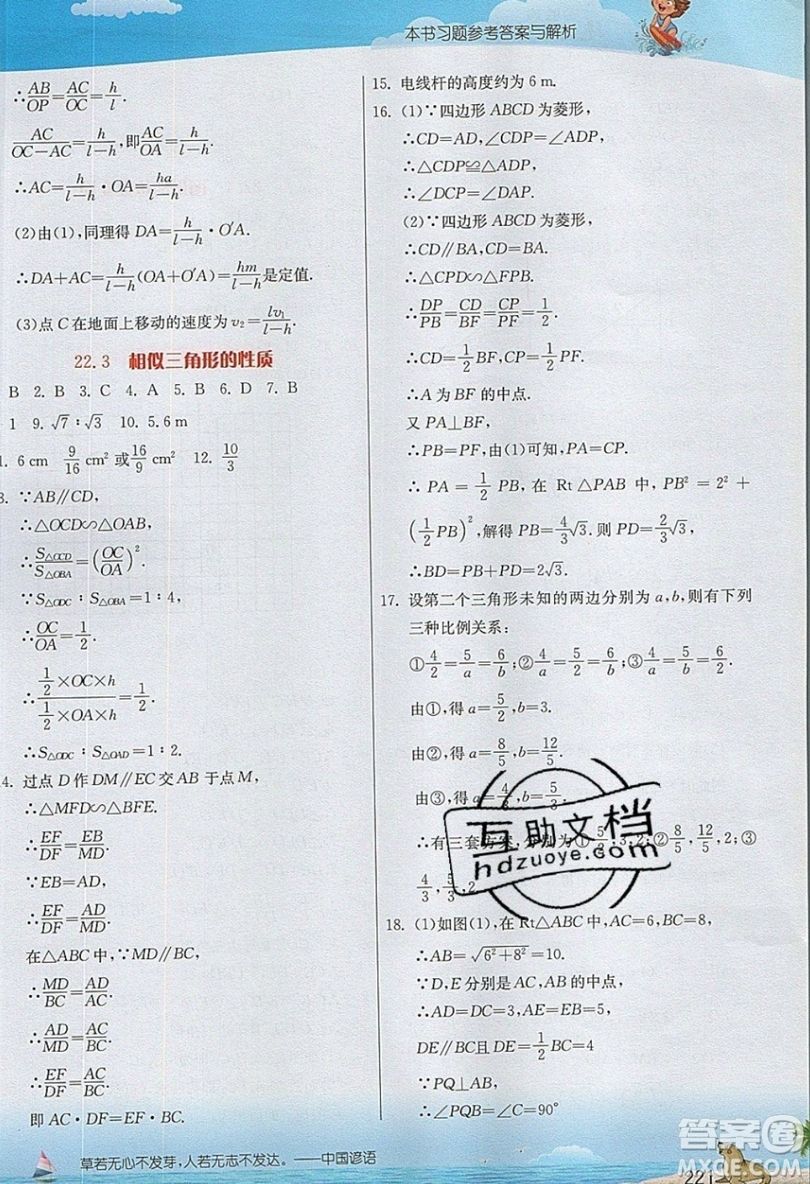 本书习题参考答案与解析
∴AB/OP=AC/OC=h/l.
AC/(OC−AC)=h/(l−h),即AC/OA=h/(l−h).
∴AC=h/(l−h)·OA=h/(l−h).
(2)由(1),同理得 DA=h/(l−h)·O′A.
∴DA+AC=h/(l−h)(OA+O′A)=hm/(l−h)是定值.
(3)点 C 在地面上移动的速度为 v₂=lv₁/(l−h).
22.3 相似三角形的性质
B 2. B 3. C 4. A 5. B 6. D 7. B
1 9. √7∶√3 10. 5.6 m
1. 6 cm 9/16 cm² 或 16/9 cm² 12. 10/3
3. ∵AB∥CD,
∴△OCD∽△OAB,
∴S△OCD/S△OBA=(OC/OA)².
∵S△ODC∶S△OBA=1∶4,
∴OC/OA=1/2.
∴(1/2×OC×h)/(1/2×OA×h)=1/2.
∴S△ODC∶S△OAD=1∶2.
4. 过点 D 作 DM∥EC 交 AB 于点 M,
∴△MFD∽△BFE.
∴EF/DF=EB/MD.
∵EB=AD,
∴EF/DF=AD/MD.
在△ABC 中,∵MD∥BC,
∴MD/BC=AD/AC.
∴AD/MD=AC/BC.
∴EF/DF=AC/BC.
即 AC·DF=EF·BC.
15. 电线杆的高度约为 6 m.
16. (1)∵四边形 ABCD 为菱形,
∴CD=AD,∠CDP=∠ADP,
∴△CDP≌△ADP,
∴∠DCP=∠DAP.
(2)∵四边形 ABCD 为菱形,
∴CD∥BA,CD=BA,
∴△CPD∽△FPB.
∴DP/PB=CD/BF=CP/PF=1/2.
∴CD=1/2BF,CP=1/2PF,
∴A 为 BF 的中点.
又 PA⊥BF,
∴PB=PF,由(1)可知,PA=CP.
∴PA=1/2PB,在 Rt△PAB 中,PB²=2²+
(1/2PB)²,解得 PB=4/3√3.则 PD=2/3√3,
∴BD=PB+PD=2√3.
17. 设第二个三角形未知的两边分别为 a,b,则有下列
三种比例关系:
①4/2=5/a=6/b;②4/a=5/2=6/b;③4/a=5/b=6/2.
由①,得 a=5/2,b=3.
由②,得 a=8/5,b=12/5.
由③,得 a=4/3,b=5/3.
∴有三套方案,分别为①5/2,3,2;②8/5,12/5,2;③
4/3,5/3,2.
18. (1)如图(1),在 Rt△ABC 中,AC=6,BC=8,
∴AB=√(6²+8²)=10.
∵D,E 分别是 AC,AB 的中点,
∴AD=DC=3,AE=EB=5,
DE∥BC且 DE=1/2BC=4
∵PQ⊥AB,
∴∠PQB=∠C=90°
互助文档
hdzuoye.com
草若无心不发芽,人若无志不发达。——中国谚语
答案圈
MXQE.COM
221